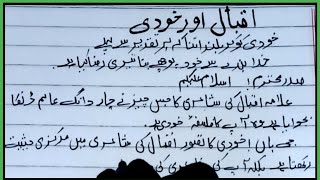 اقبال اور خودی
خودی کو کر بلند اتنا کہ ہر تقدیر سے پہلے
خدا بندے سے خود پوچھے بتا تیری رضا کیا ہے
صدر محترم! اسلام علیکم
علامہ اقبال کی شاعری کا جس چیز نے چار دانگ عالم ڈنکا
بجوایا ہے وہ آپ کا فلسفہ خودی ہے۔
جی ہاں! خودی کا تصور اقبال کی شاعری میں مرکزی حیثیت
رکھتا ہے بلکہ آپ کی